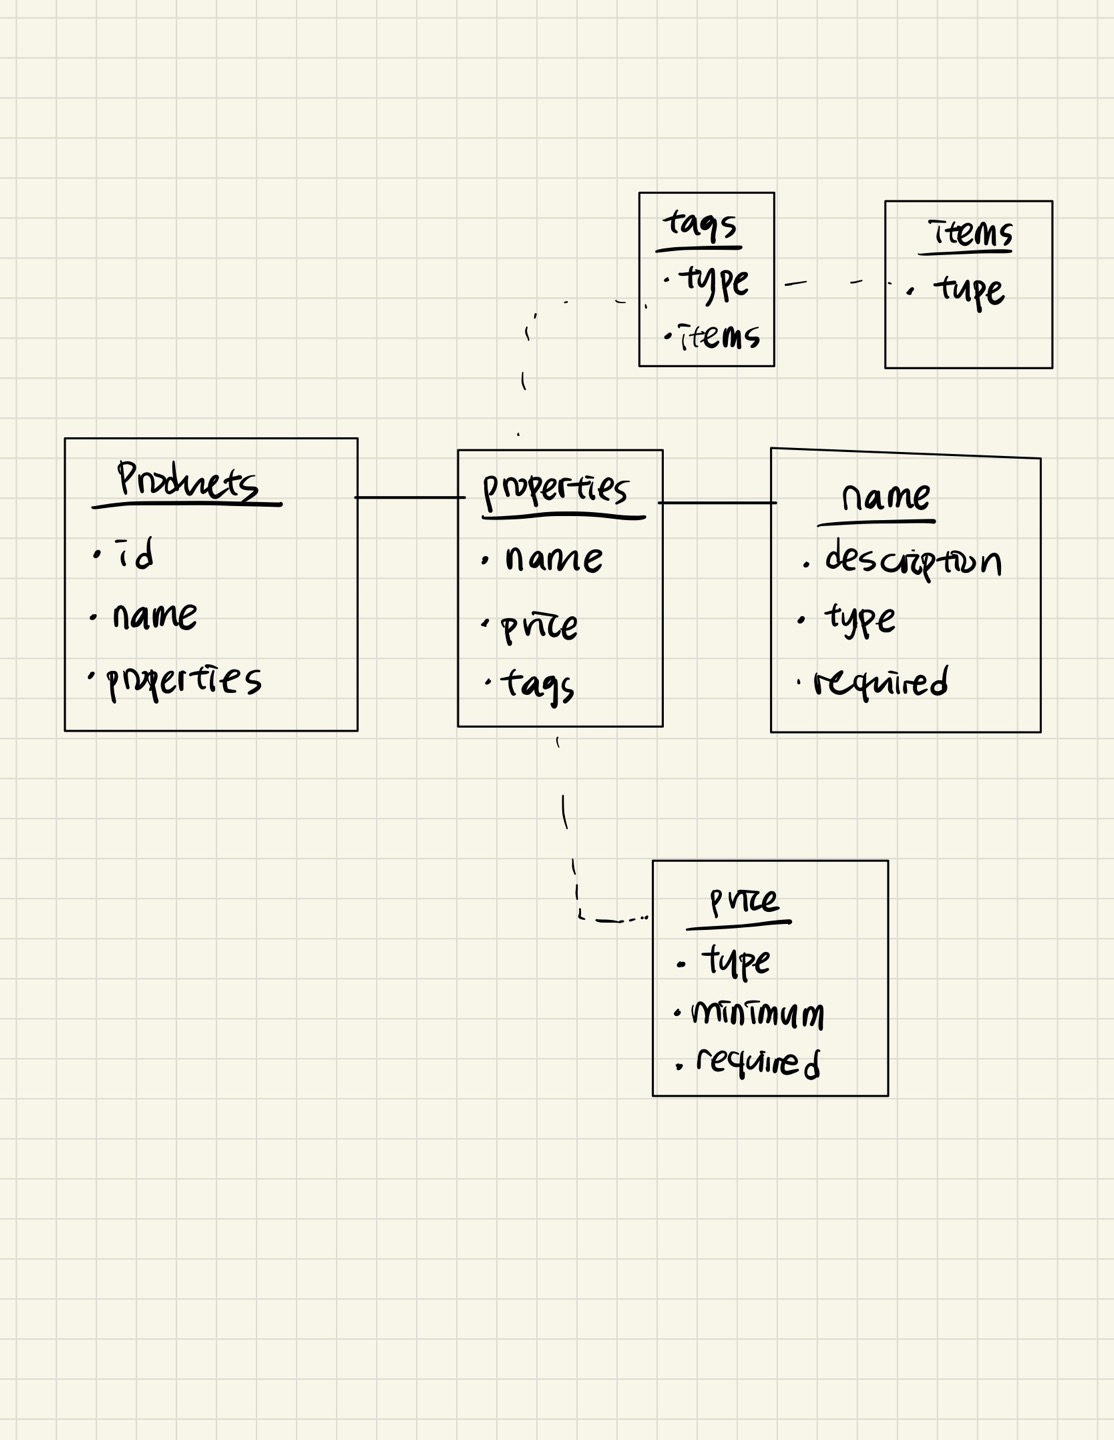 tags
· type
· items
items
· type
Products
· id
· name
· properties
properties
· name
· price
· tags
name
· description
· type
· required
price
· type
· minimum
· required